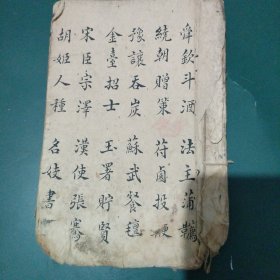 欽斗酒 法主蒲韉
繞朝贈策 苻鹵投
豫讓吞炭 蘇武餐氈
金臺招士 玉署貯賢
宋臣宗澤 漢使張騫
胡姬人種 名妓書